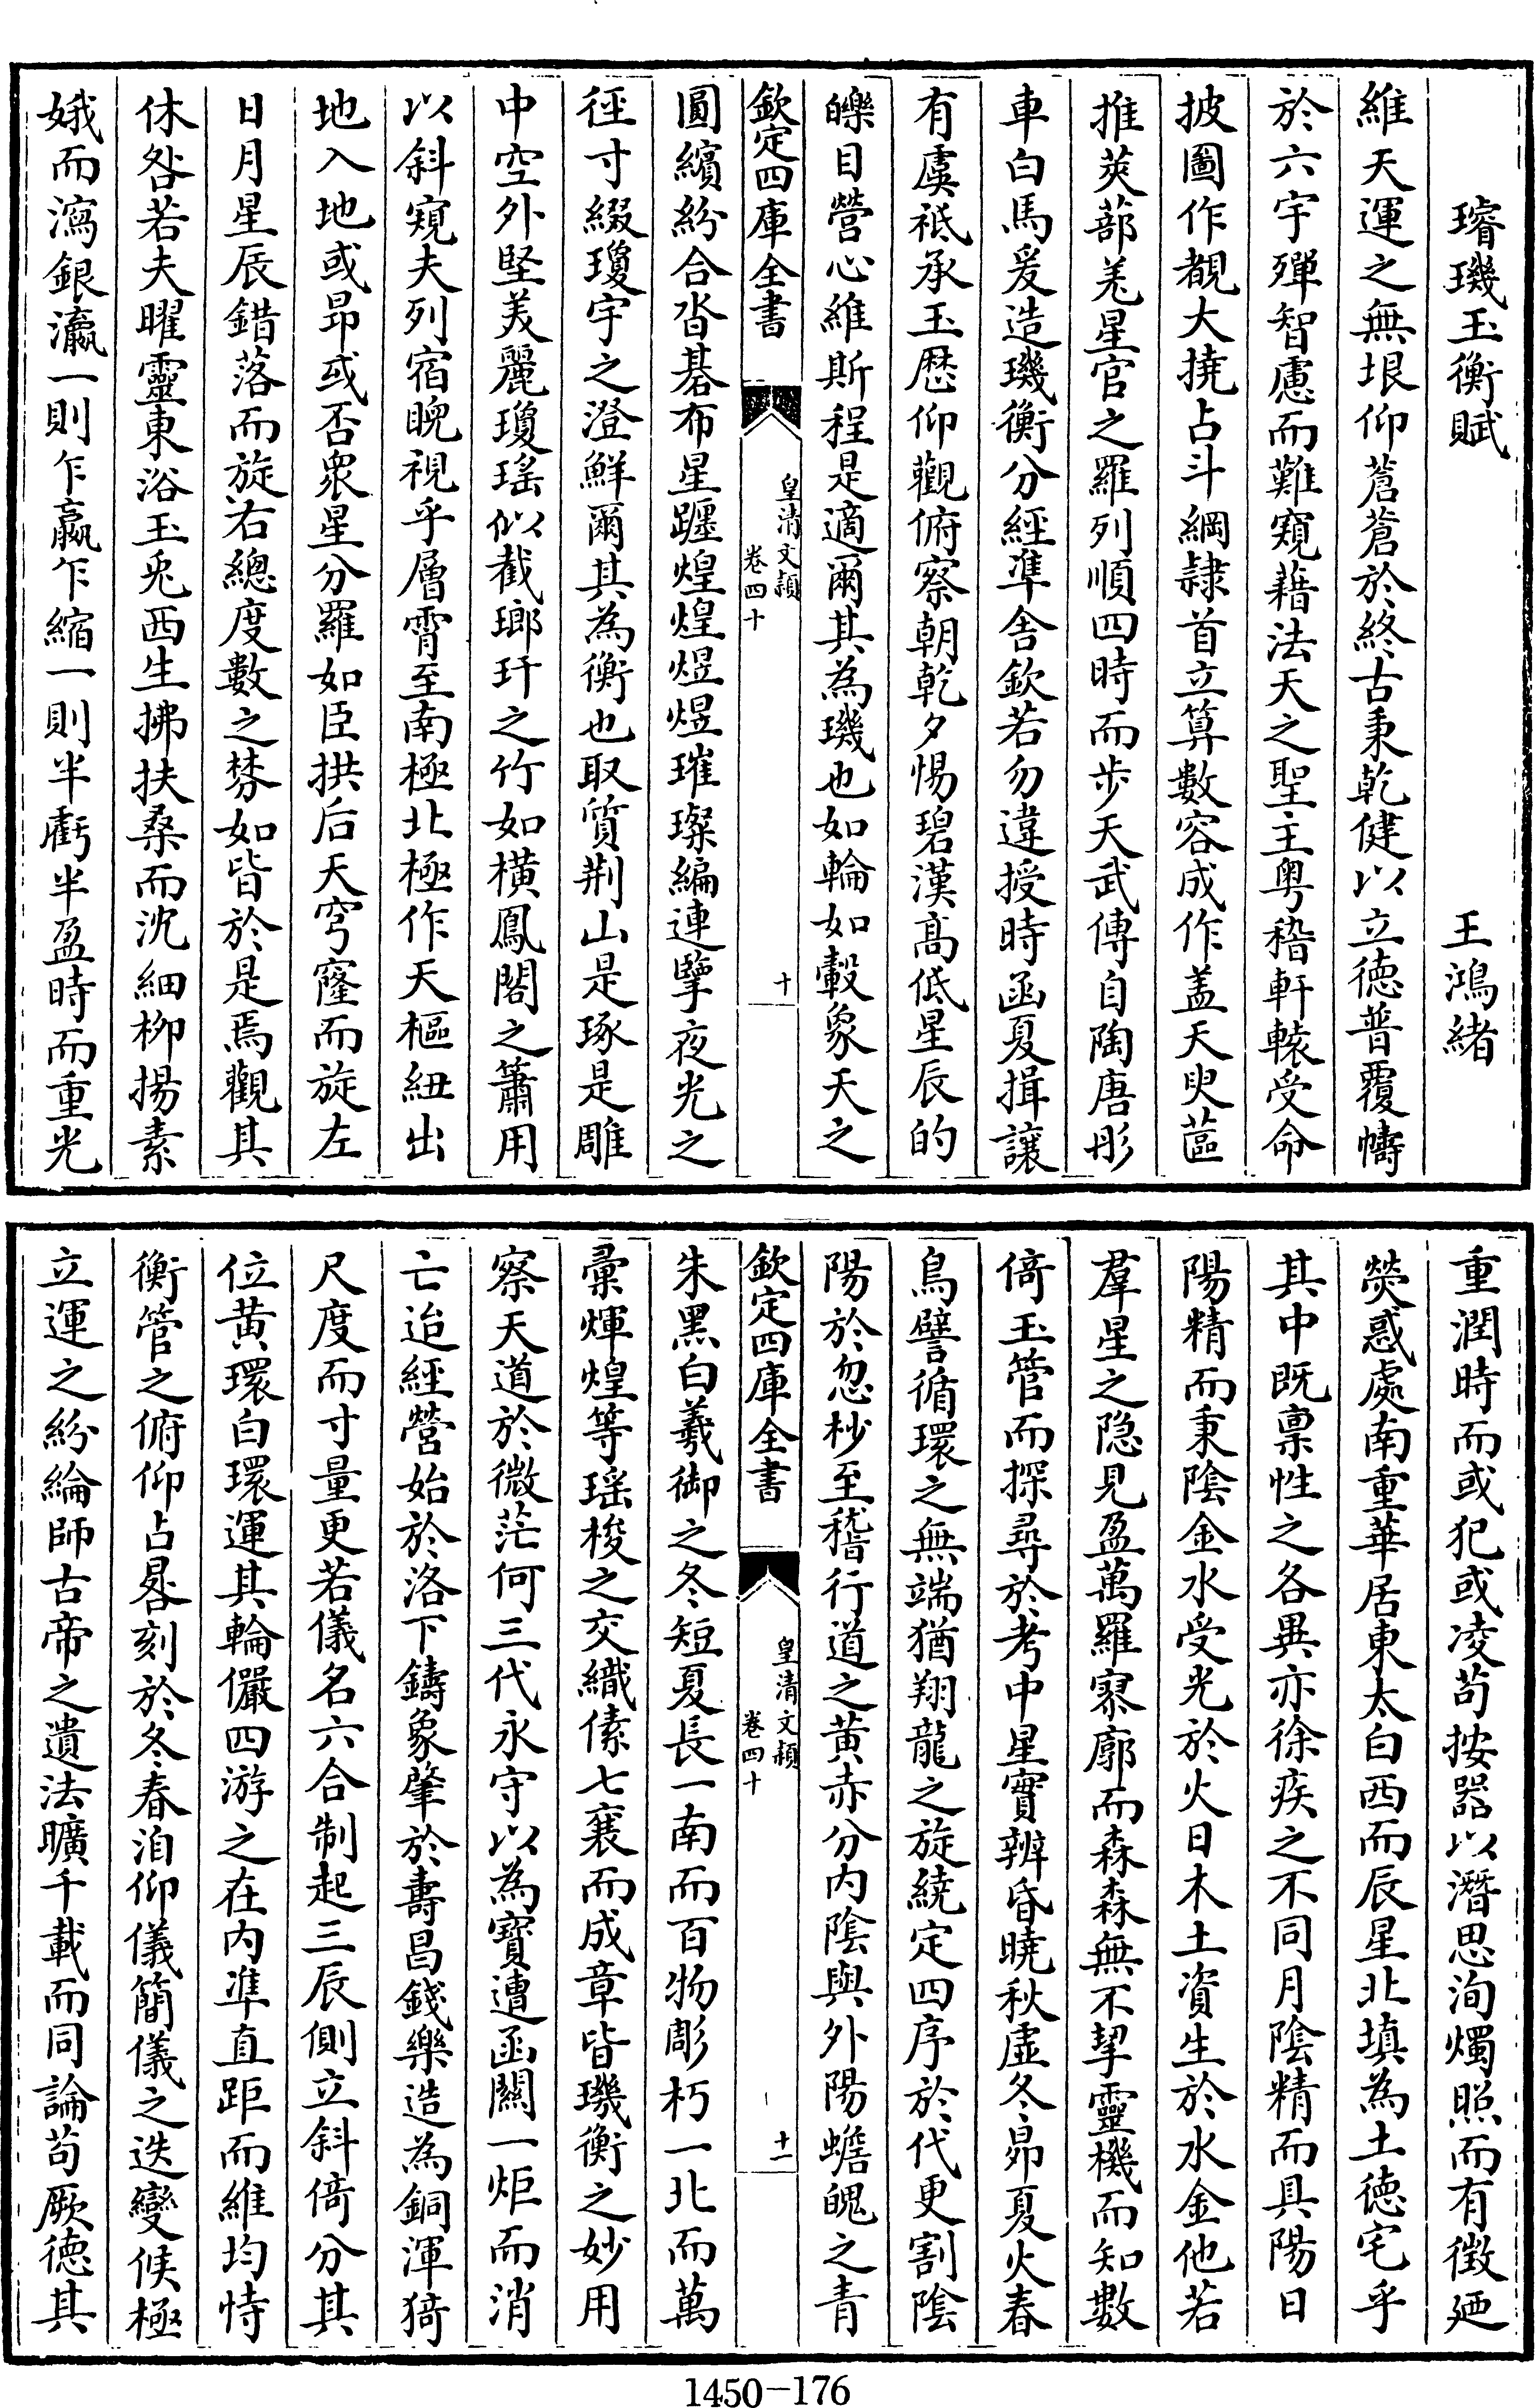 璿璣玉衡賦　王鴻緒
維天運之無垠仰蒼蒼於終古秉乾健以立德普覆幬
於六宇殫智慮而難窺藉法天之聖主粤稽軒轅受命
披圖作覩大撓占斗綱隷首立算數容成作蓋天㬰蓲
推萯蔀羗星官之羅列順四時而步天武傳自陶唐彤
車白馬爰造璣衡分經準舍欽若勿違授時函夏揖讓
有虞祗承玉厯仰觀俯察朝乾夕惕碧漢髙低星辰的
皪目營心維斯程是適爾其為璣也如輪如轂象天之
欽定四庫全書　皇清文穎　卷四十　十
圓繽紛合沓碁布星躔煌煌煜煜璀璨編連擥夜光之
徑寸綴瓊宇之澄鮮爾其為衡也取質荆山是琢是雕
中空外堅美麗瓊瑶似截瑯玕之竹如横鳳閣之簫用
以斜窺夫列宿睨視乎層霄至南極北極作天樞紐出
地入地或昂或否衆星分羅如臣拱后天穹窿而旋左
日月星辰錯落而旋右總度數之棼如皆於是焉觀其
休咎若夫曜靈東浴玉兎西生拂扶桑而沈細柳揚素
娥而瀉銀瀛一則乍贏乍縮一則半虧半盈時而重光
重潤時而或犯或凌苟按器以潛思洵燭照而有徴廼
熒惑處南重華居東太白西而辰星北填為土德宅乎
其中既禀性之各異亦徐疾之不同月陰精而具陽日
陽精而秉陰金水受光於火日木土資生於水金他若
羣星之隐見盈萬羅寥廓而森森無不挈靈機而知數
倚玉管而探尋於考中星實辨昏曉秋虚冬昴夏火春
鳥譬循環之無端猶翔龍之旋繞定四序於代更割陰
陽於忽杪至稽行道之黄赤分内陰與外陽蟾魄之青
欽定四庫全書　皇清文穎　卷四十　十一
朱黑白羲御之冬短夏長一南而百物彫朽一北而萬
彚煇煌等瑶梭之交織傃七襄而成章皆璣衡之妙用
察天道於微茫何三代永守以為寳遭函關一炬而消
亡迨經營始於洛下鑄象肇於夀昌錢樂造為銅渾猗
尺度而寸量更若儀名六合制起三辰側立斜倚分其
位黄環白環運其輪儼四游之在内凖直距而維均恃
衡管之俯仰占晷刻於冬春洎仰儀簡儀之迭變候極
立運之紛綸師古帝之遺法曠千載而同論苟厥德其
1450-176